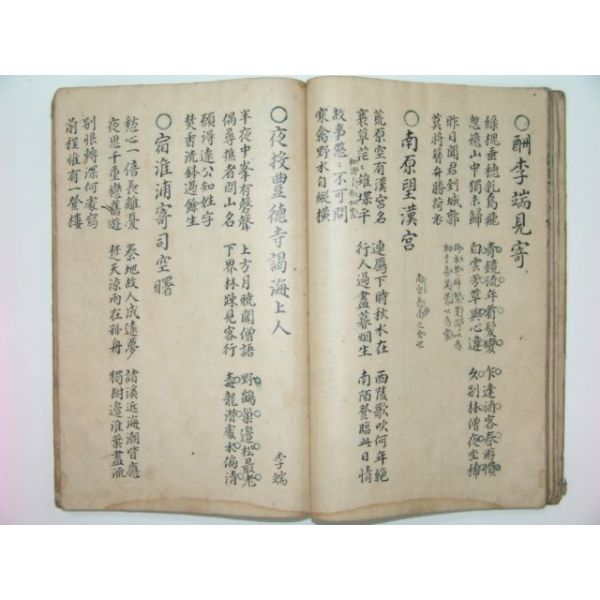 ○酬李端見寄
綠槐垂穗乳烏飛 青鏡流年看髮變 乍逢酒客春游慣
忽憶山中獨未歸 白雲芳草與心違 久別林僧夜坐稀
昨日聞君到城郭
莫將簪弁勝荷衣
○南原望漢宮
荒原空有漢宮名 連雁下時秋水在 西陵歌吹何年絕
衰草茫〻雉堞平 行人過盡暮烟生 南陌登臨此日情
故事悠〻不可問
寒禽野水自縱橫
○夜投豊德寺謁海上人 李端
半夜中峯有磬聲 上方月曉聞僧語 野鶴巢邊松最老
偶尋樵者問山名 下界林踈見客行 毒龍潛處水偏清
願得遠公知姓字
焚香洗鉢過餘生
○宿淮浦寄司空曙
愁心一倍長離憂 秦地故人成遠夢 諸溪近海潮皆應
夜思千重戀舊遊 楚天涼雨在孤舟 獨樹邊淮葉盡流
別恨轉深何處寫
前程惟有一登樓